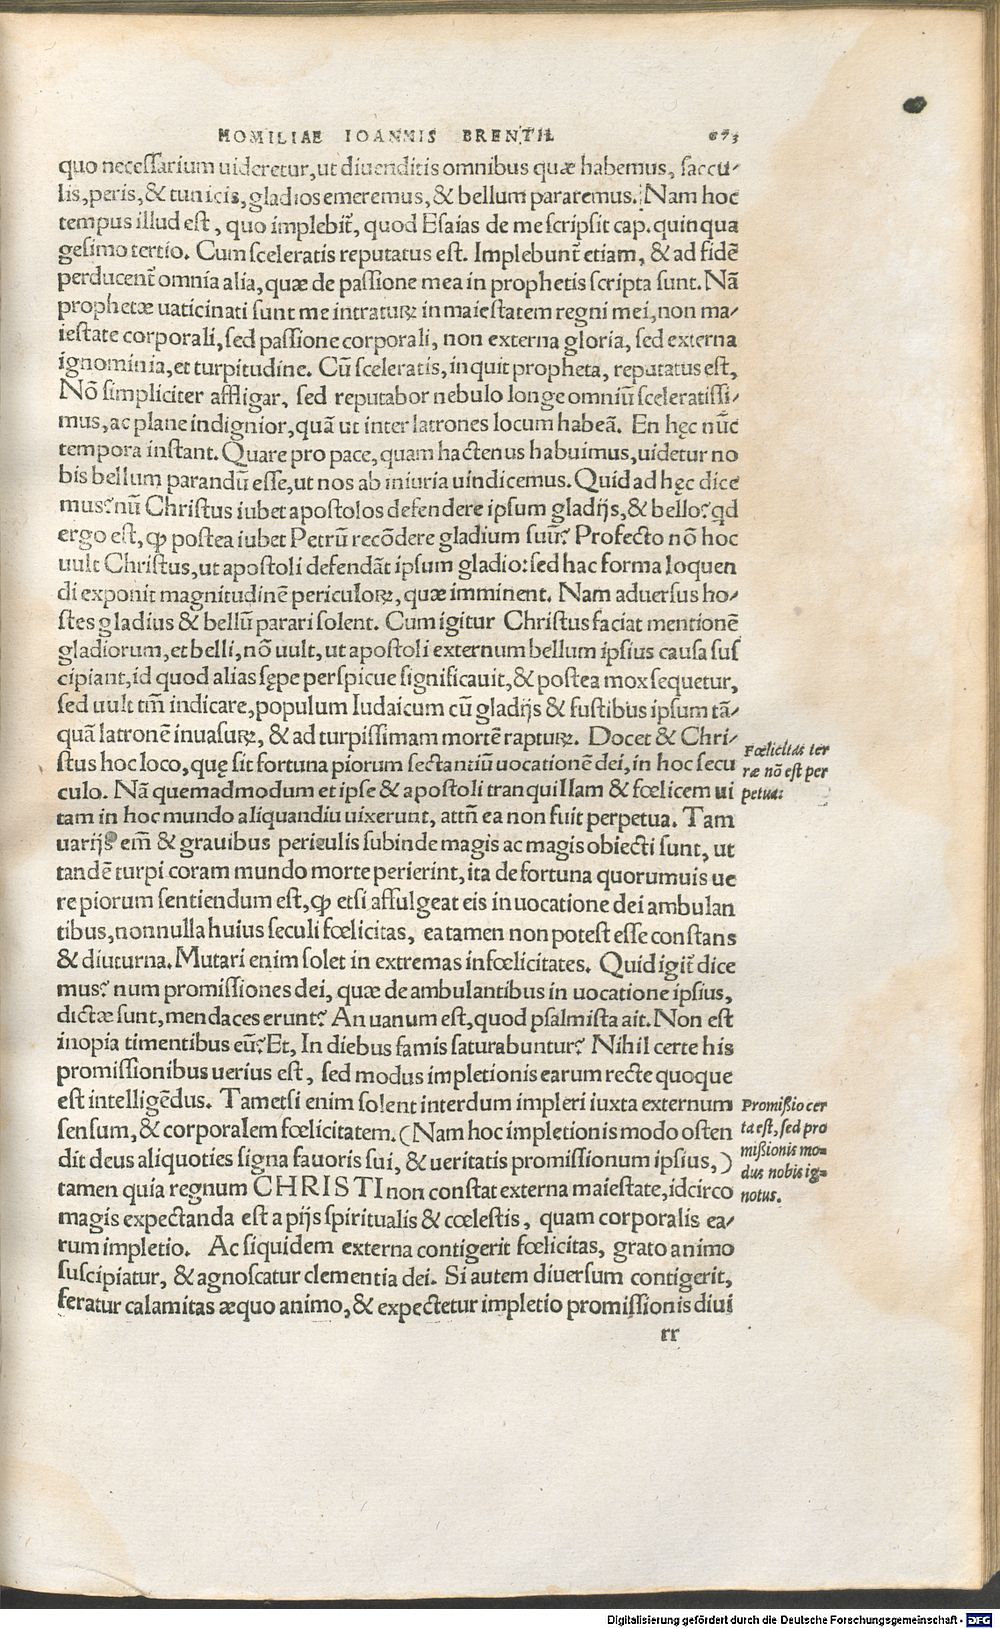 HOMILIAE IOANNIS BRENTII. 673
quo necessarium uideretur, ut diuenditis omnibus quæ habemus, saccu-
lis, peris, & tunicis, gladios emeremus, & bellum pararemus. Nam hoc
tempus illud est, quo implebit̃, quod Esaias de me scripsit cap. quinqua
gesimo tertio. Cum sceleratis reputatus est. Implebunt̃ etiam, & ad fidẽ
perducent̃ omnia alia, quæ de passione mea in prophetis scripta sunt. Nã
prophetæ uaticinati sunt me intraturꝝ in maiestatem regni mei, non ma-
iestate corporali, sed passione corporali, non externa gloria, sed externa
ignominia, et turpitudine. Cũ sceleratis, inquit propheta, reputatus est,
Nõ simpliciter affligar, sed reputabor nebulo longe omniũ sceleratissi-
mus, ac plane indignior, quã ut inter latrones locum habeã. En hęc nũc
tempora instant. Quare pro pace, quam hactenus habuimus, uidetur no
bis bellum parandũ esse, ut nos ab iniuria uindicemus. Quid ad hęc dice
mus? nũ Christus iubet apostolos defendere ipsum gladijs, & bello? qd
ergo est, ꝙ postea iubet Petrũ recõdere gladium suũ? Profecto nõ hoc
uult Christus, ut apostoli defendãt ipsum gladio: sed hac forma loquen
di exponit magnitudinẽ periculoꝝ, quæ imminent. Nam aduersus ho-
stes gladius & bellũ parari solent. Cum igitur Christus faciat mentionẽ
gladiorum, et belli, nõ uult, ut apostoli externum bellum ipsius causa sus
cipiant, id quod alias sępe perspicue significauit, & postea mox sequetur,
sed uult tm̃ indicare, populum Iudaicum cũ gladijs & fustibus ipsum tã-
quã latronẽ inuasurꝝ, & ad turpissimam mortẽ rapturꝝ. Docet & Chri-
stus hoc loco, quę sit fortuna piorum sectantiũ uocationẽ dei, in hoc secu
culo. Nã quemadmodum et ipse & apostoli tranquillam & fœlicem ui
tam in hoc mundo aliquandiu uixerunt, attñ ea non fuit perpetua. Tam
uarijs em̃ & grauibus periculis subinde magis ac magis obiecti sunt, ut
tandẽ turpi coram mundo morte perierint, ita de fortuna quorumuis ue
re piorum sentiendum est, ꝙ etsi affulgeat eis in uocatione dei ambulan
tibus, nonnulla huius seculi fœlicitas, ea tamen non potest esse constans
& diuturna. Mutari enim solet in extremas infœlicitates. Quid igit̃ dice
mus? num promissiones dei, quæ de ambulantibus in uocatione ipsius,
dictæ sunt, mendaces erunt? An uanum est, quod psalmista ait. Non est
inopia timentibus eũ? Et, In diebus famis saturabuntur? Nihil certe his
promissionibus uerius est, sed modus impletionis earum recte quoque
est intelligẽdus. Tametsi enim solent interdum impleri iuxta externum
sensum, & corporalem fœlicitatem. (Nam hoc impletionis modo osten
dit deus aliquoties signa fauoris sui, & ueritatis promissionum ipsius,)
tamen quia regnum CHRISTI non constat externa maiestate, idcirco
magis expectanda est a pijs spiritualis & cœlestis, quam corporalis ea-
rum impletio. Ac siquidem externa contigerit fœlicitas, grato animo
suscipiatur, & agnoscatur clementia dei. Si autem diuersum contigerit,
feratur calamitas æquo animo, & expectetur impletio promissionis diui
rr
Fœlicitas ter
ræ nõ est per
petua:
Promißio cer
ta est, sed pro
mißionis mo-
dus nobis ig-
notus.
Digitalisierung gefördert durch die Deutsche Forschungsgemeinschaft - DFG